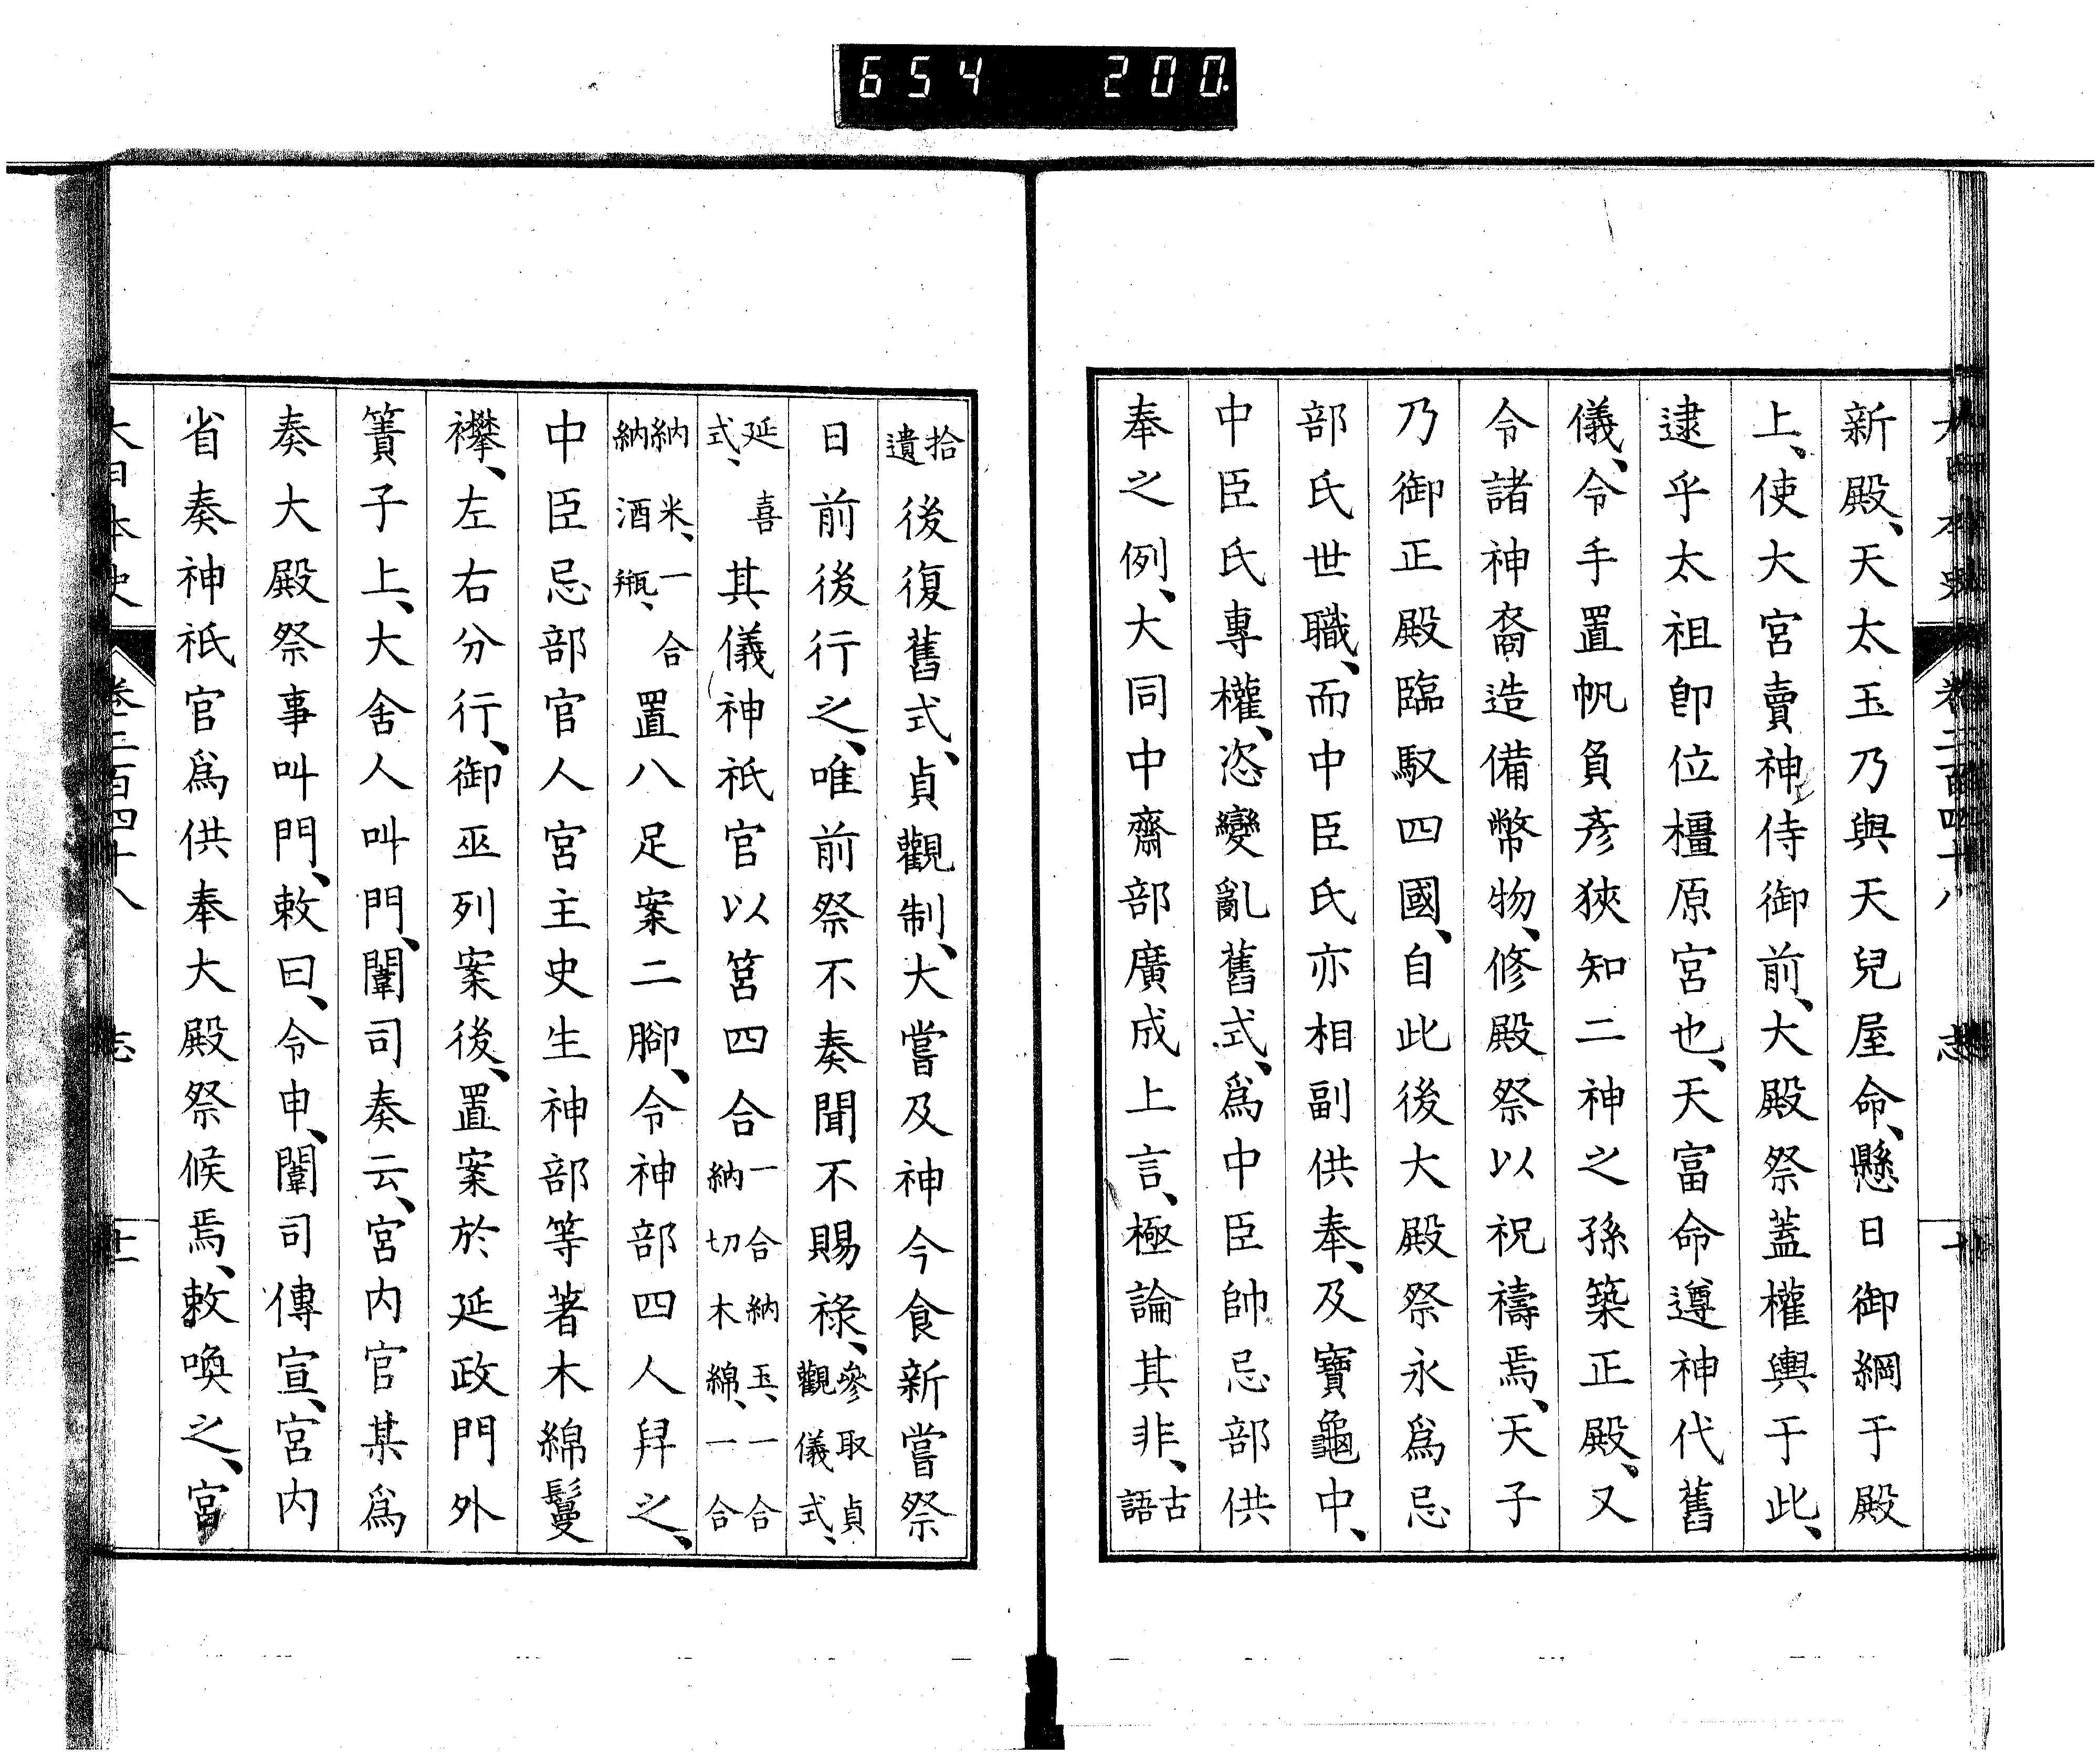 654 200
新殿、天太玉乃與天兒屋命、懸日御綱于殿
上、使大宮賣神侍御前、大殿祭蓋權輿于此、
逮乎太祖卽位橿原宮也、天富命遵神代舊
儀、令手置帆負彥狹知二神之孫築正殿、又
令諸神裔造備幣物、修殿祭以祝禱焉、天子
乃御正殿臨馭四國、自此後大殿祭永爲忌
部氏世職、而中臣氏亦相副供奉、及寶龜中、
中臣氏專權、恣變亂舊式、爲中臣帥忌部供
奉之例、大同中齋部廣成上言、極論其非、古語
拾遺後復舊式、貞觀制、大嘗及神今食新嘗祭
日前後行之、唯前祭不奏聞不賜祿、參取貞觀儀式、
延喜式、其儀神祇官以筥四合一合納玉、一合納切木綿、一合
納米、一合納酒瓶、置八足案二腳、令神部四人舁之、
中臣忌部官人宮主史生神部等著木綿鬘
襷、左右分行、御巫列案後、置案於延政門外
簀子上、大舍人叫門、闈司奏云、宮内官某爲
奏大殿祭事叫門、敕曰、令申、闈司傳宣、宮内
省奏神祇官爲供奉大殿祭候焉、敕喚之、宮
大日本史 卷二百四十八 志